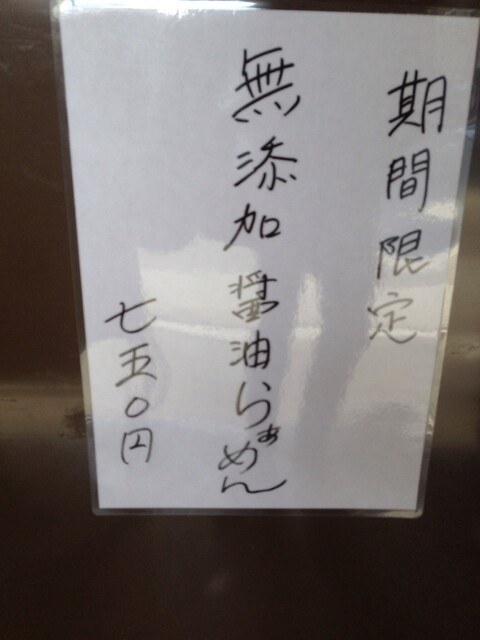 期間限定
無添加醤油らぁめん
七五〇円